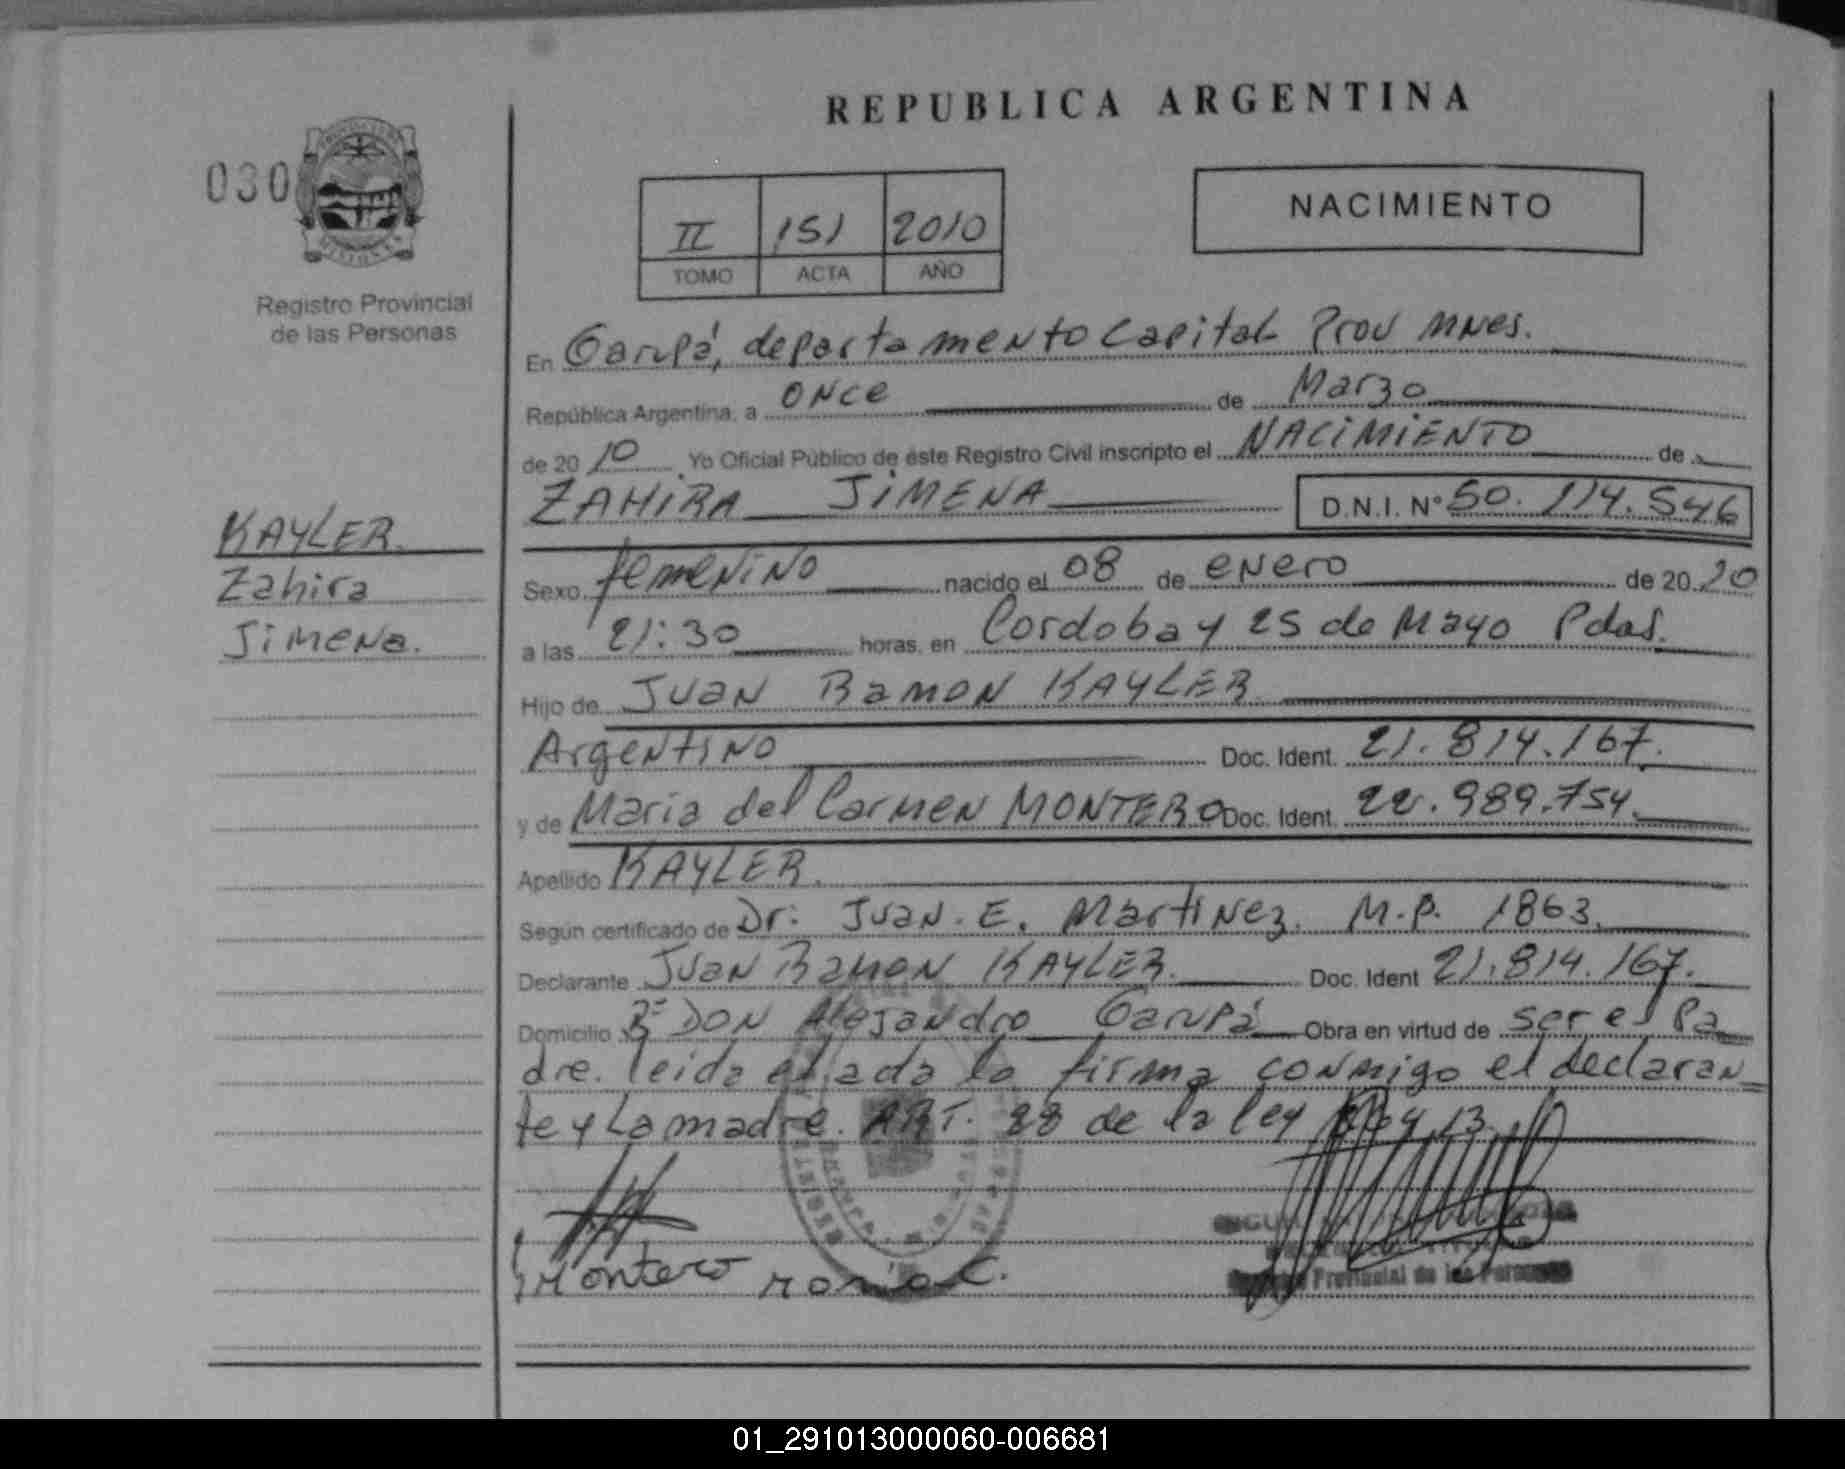 REPUBLICA ARGENTINA
030
NACIMIENTO
II 151 2010
TOMO ACTA AÑO
Registro Provincial
de las Personas
En Garupá, departamento Capital Prov Mnes.
República Argentina, a once de Marzo
de 2010 Yo Oficial Público de éste Registro Civil inscripto el NACIMIENTO de
ZAHIRA JIMENA D.N.I. N° 50.114.546
KAYLER.
Zahira
Jimena.
Sexo femenino nacido el 08 de enero de 2010
a las 21:30 horas, en Cordoba y 25 de Mayo Pdas.
Hijo de Juan Ramon KAYLER
Argentino Doc. Ident. 21.814.167.
y de Maria del Carmen MONTERO Doc. Ident. 22.989.754.
Apellido KAYLER.
Según certificado de Dr: Juan. E. Martinez. M.P. 1863.
Declarante Juan Ramon KAYLER. Doc. Ident 21.814.167.
Domicilio Bº DON Alejandro Garupá Obra en virtud de ser el Pa
dre. leida el acta la firma conmigo el declaran
te y La madre. ART. 28 de la ley
Montero Maria C.
Provincial de las Personas
01_291013000060-006681